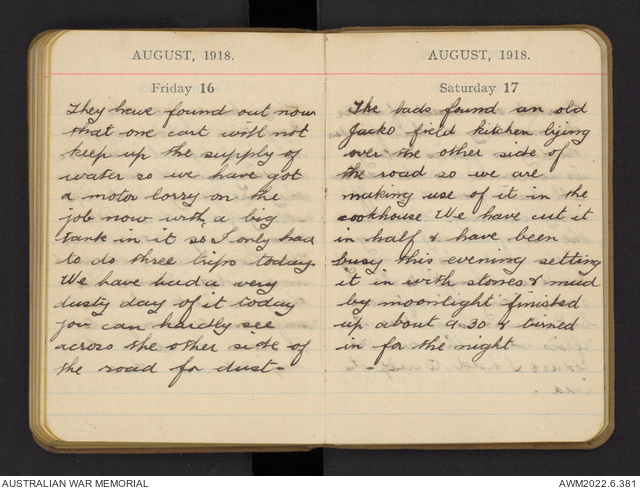 AUGUST, 1918.
Friday 16
They have found out now
that one cart will not
keep up the supply of
water so we have got
a motor lorry on the
job now with a big
tank in it so I only had
to do three trips today.
We have had a very
dusty day of it today
you can hardly see
across the other side of
the road for dust-
AUGUST, 1918.
Saturday 17
The lads found an old
Jacko field kitchen lying
over the other side of
the road so we are
making use of it in the
cookhouse We have cut it
in half & have been
busy this evening setting
it in with stones & mud
by moonlight finished
up about 9.30 & turned
in for the night
AUSTRALIAN WAR MEMORIAL
AWM2022.6.381